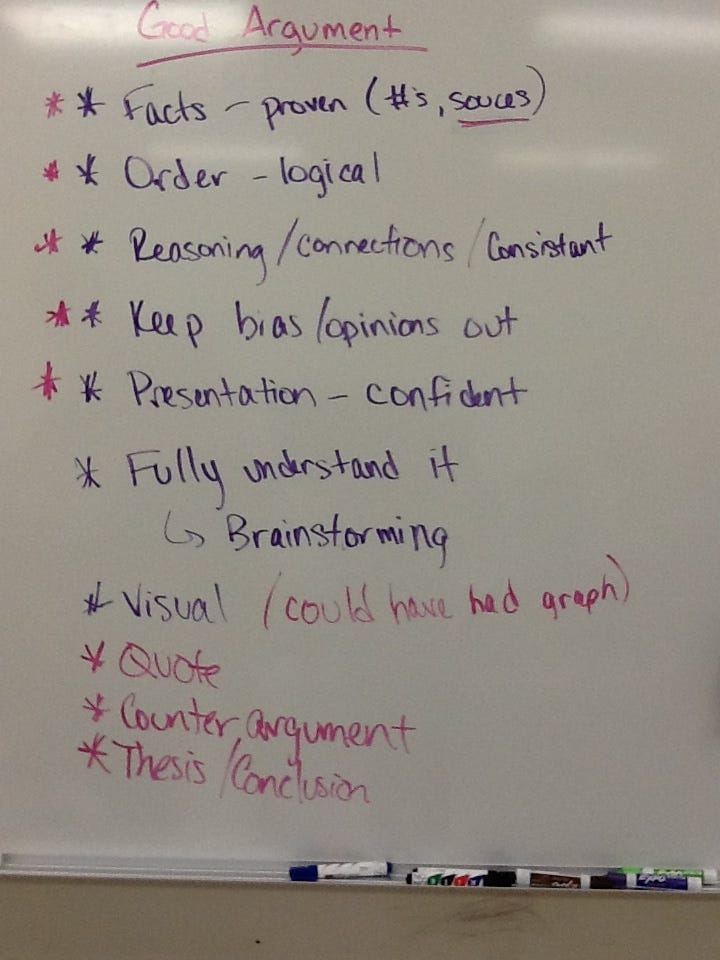 Good Argument
* * Facts - proven (#'s, souces)
* * Order - logical
* * Reasoning / connections / Consistant
* * Keep bias / opinions out
* * Presentation - confident
* Fully understand it
↳ Brainstorming
* Visual (could have had graph)
* Quote
* Counter argument
* Thesis / Conclusion